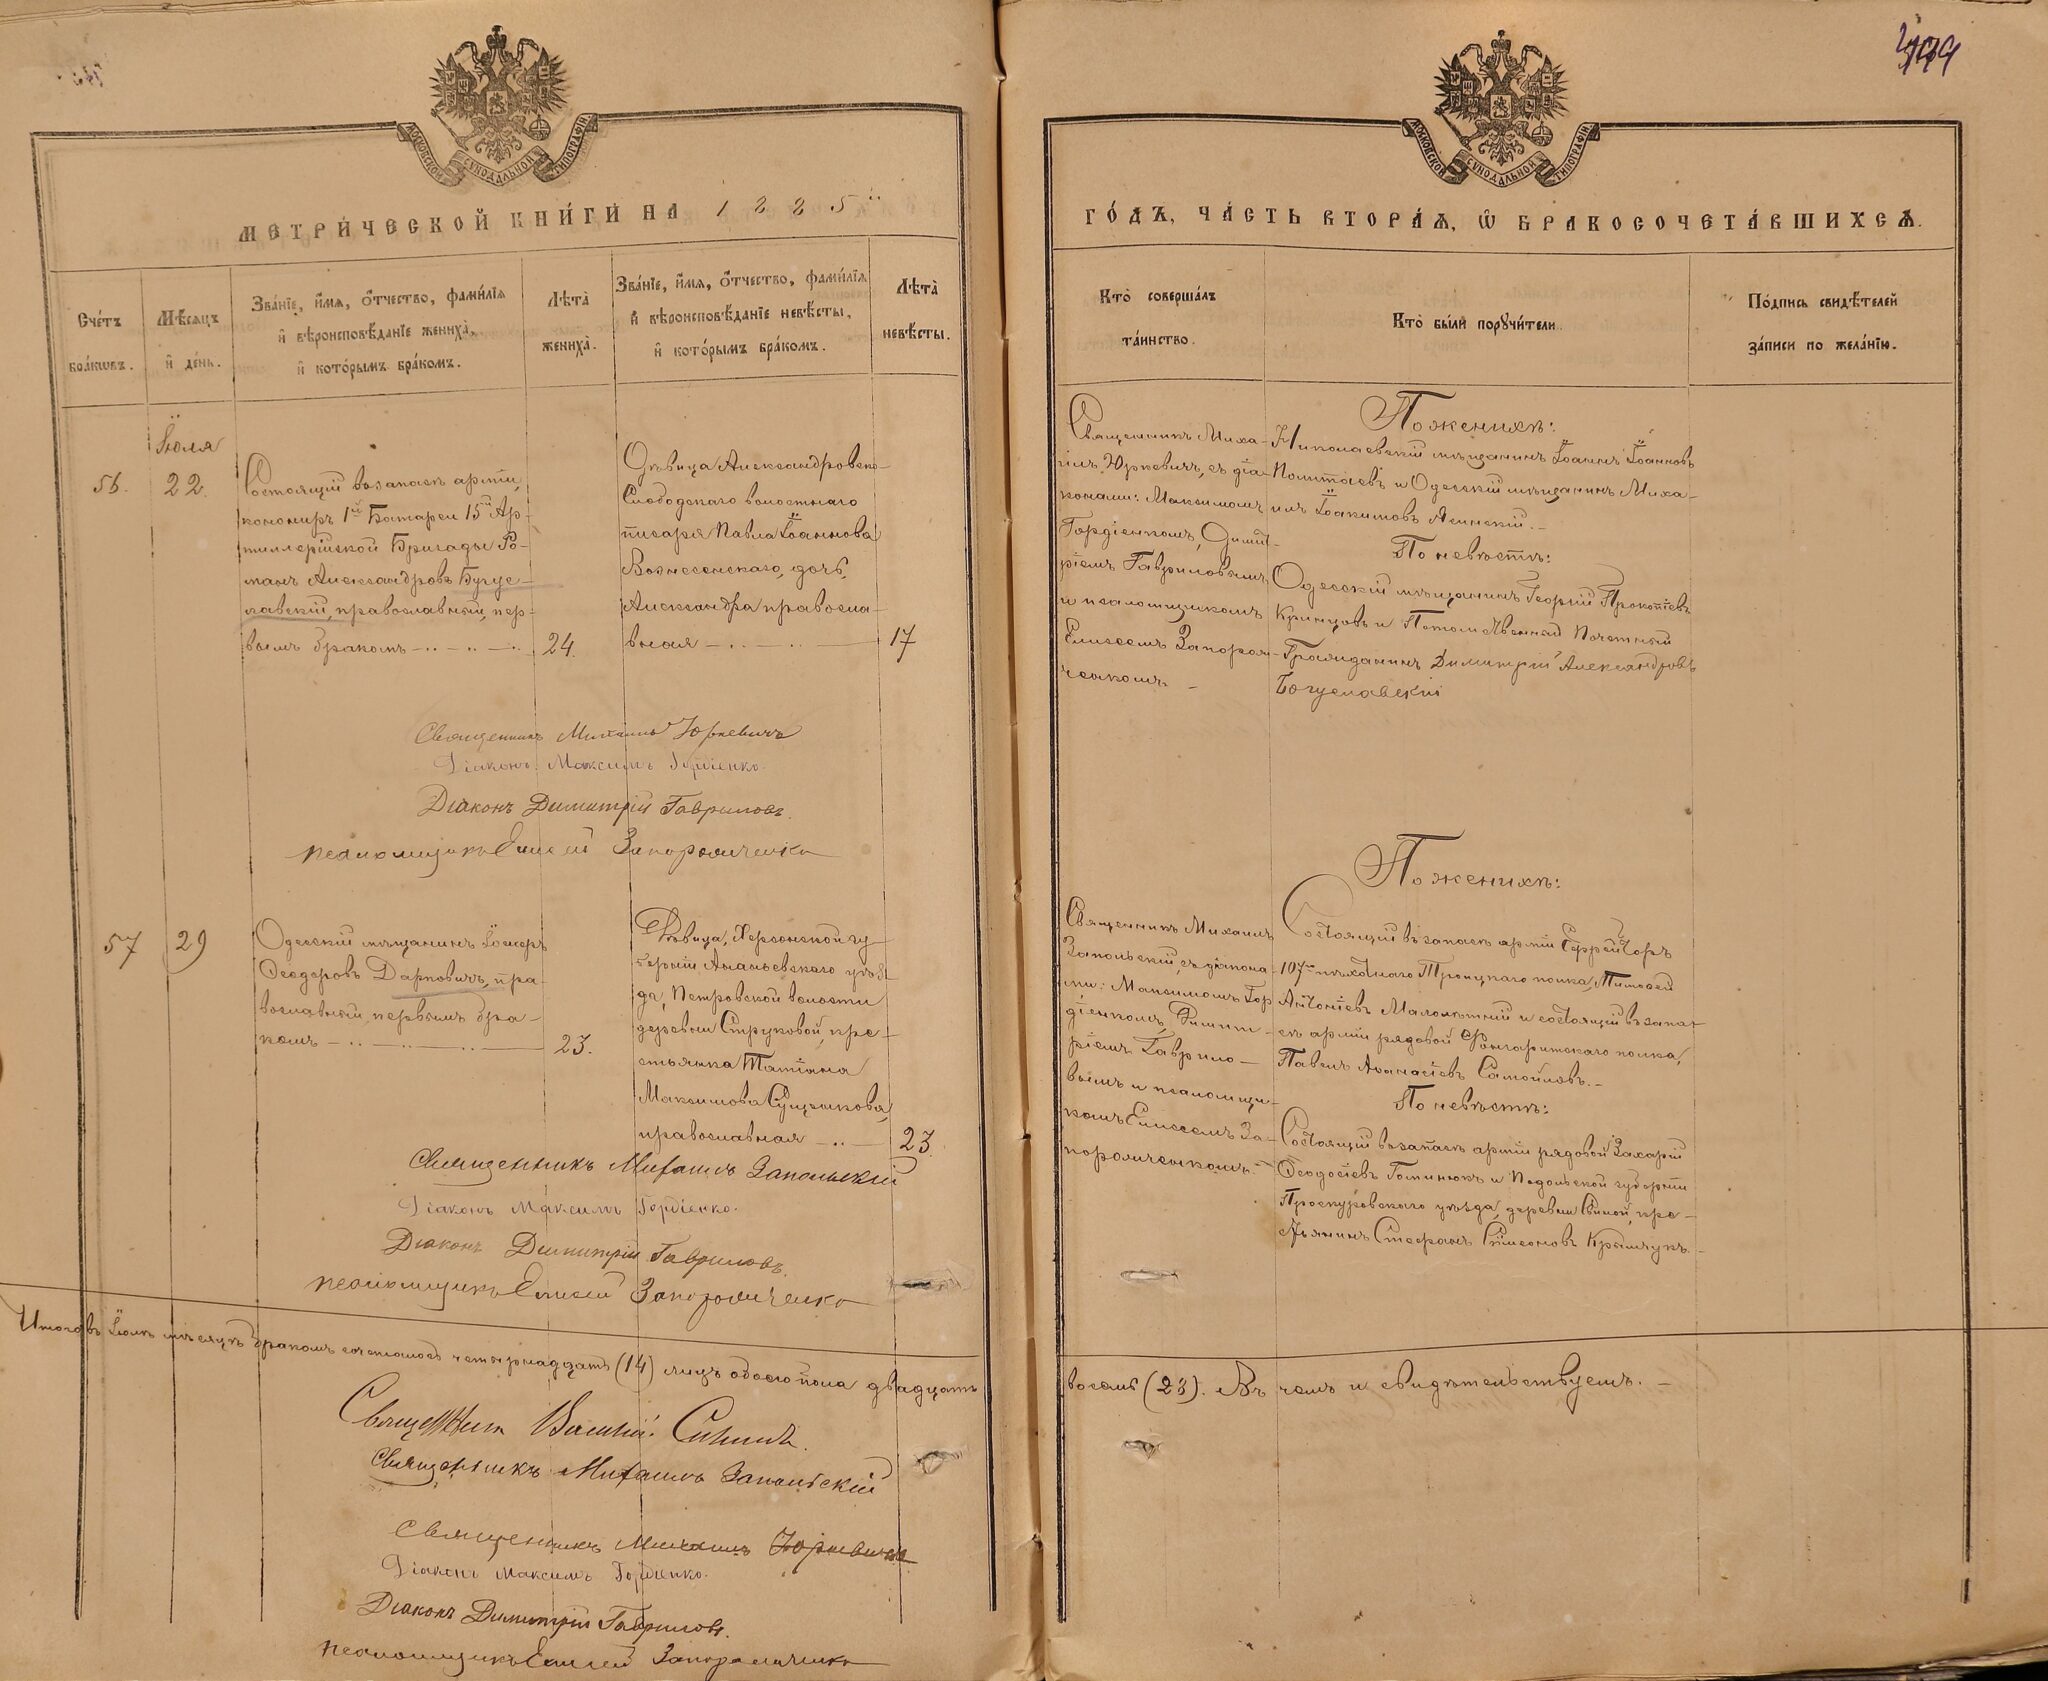 199
МОСКОВСКОЙ СѴНОДАЛЬНОЙ ТИПОГРАФІИ
МОСКОВСКОЙ СѴНОДАЛЬНОЙ ТИПОГРАФІИ
МЕТРИ́ЧЕСКОЙ КНИ́ГИ НА 1885й
ГО́ДЪ, ЧА́СТЬ ВТОРА́Я, Ѡ БРАКОСОЧЕТА́ВШИХСЯ.
Сче́тъ бра́ковъ.
Мѣ́сяцъ и де́нь.
Зва́нїе, и́мя, о́тчество, фами́лїя и вѣроисповѣ́данїе жениха̀, и кото́рымъ бра́комъ.
Лѣта̀ жениха̀.
Зва́нїе, и́мя, о́тчество, фами́лїя и вѣроисповѣ́данїе невѣ́сты, и кото́рымъ бра́комъ.
Лѣта̀ невѣ́сты.
Кто̀ соверша́лъ та́инство.
Кто̀ бы́ли поручи́тели.
По́дпись свидѣ́телей за́писи по жела́нїю.
56.
Іюля
22
Состоящій въ запасѣ арміи,
канониръ 1й Батареи 15й Ар-
тиллерійской Бригады Ро-
манъ Александровъ Бугус-
лавскій, православный, пер-
вымъ бракомъ
24.
Дѣвица Александровско-
Слободскаго волостнаго
писаря Павла Іоаннова
Вознесенскаго, дочь,
Александра православ-
ная
17
Священникъ Миха-
илъ Юркевичъ, съ діа-
конами: Максимомъ
Гордіенкомъ, Димит-
ріемъ Гавриловымъ
и псаломщикомъ
Елисеемъ Запорож-
ченкомъ
По женихѣ:
Николаевскій мѣщанинъ Іоаннъ Іоанновъ
и Одесскій мѣщанинъ Миха-
илъ Іоакимовъ Ясинскій.
По невѣстѣ:
Одесскій мѣщанинъ Георгій Прокопіевъ
и Потомственный Почетный
Гражданинъ Димитрій Александровъ
Богуславскій
Священникъ Михаилъ Юркевичъ
Діаконъ Максимъ Гордіенко.
Діаконъ Димитрій Гавриловъ.
псаломщикъ Елисей Запорожченко
57
29
Одесскій мѣщанинъ
Ѳеодоровъ Дарповичъ, пра-
вославный, первымъ бра-
комъ
23.
Дѣвица, Херсонской гу-
берніи Ананьевскаго уѣз-
да, Петровской волости
деревни Струковой, кре-
стьянка Татіана
Максимова Сущенкова,
православная
23.
Священникъ Михаилъ
Запольскій, съ діакона-
ми: Максимомъ Гор-
діенкомъ, Димит-
ріемъ Гаврило-
вымъ и псаломщи-
комъ Елисеемъ За-
порожченкомъ
По женихѣ:
Состоящій въ запасѣ арміи Ефрейторъ
107го пѣхотнаго Троицкаго полка, Тимофей
Антоніевъ Малолѣтній и состоящій въ запа-
сѣ арміи рядовой полка,
Павелъ Аѳанасіевъ Самойловъ.
По невѣстѣ:
Состоящій въ запасѣ арміи рядовой Захарій
Ѳеодосіевъ Гоминюкъ и Подольской губерніи
Проскуровскаго уѣзда, деревни кре-
стьянинъ Стефанъ Симеоновъ Крымчукъ.
Священникъ Михаилъ Запольскій
Діаконъ Максимъ Гордіенко.
Діаконъ Димитрій Гавриловъ.
псаломщикъ Елисей Запорожченко
Итого въ Іюлѣ мѣсяцѣ бракомъ сочеталось четырнадцать (14) лицъ обоего пола двадцать
восемь (28). Въ чемъ и свидѣтельствуемъ.
Священникъ Василій
Священникъ Михаилъ Запольскій
Священникъ Михаилъ Юркевичъ
Діаконъ Максимъ Гордіенко.
Діаконъ Димитрій Гавриловъ.
псаломщикъ Елисей Запорожченко